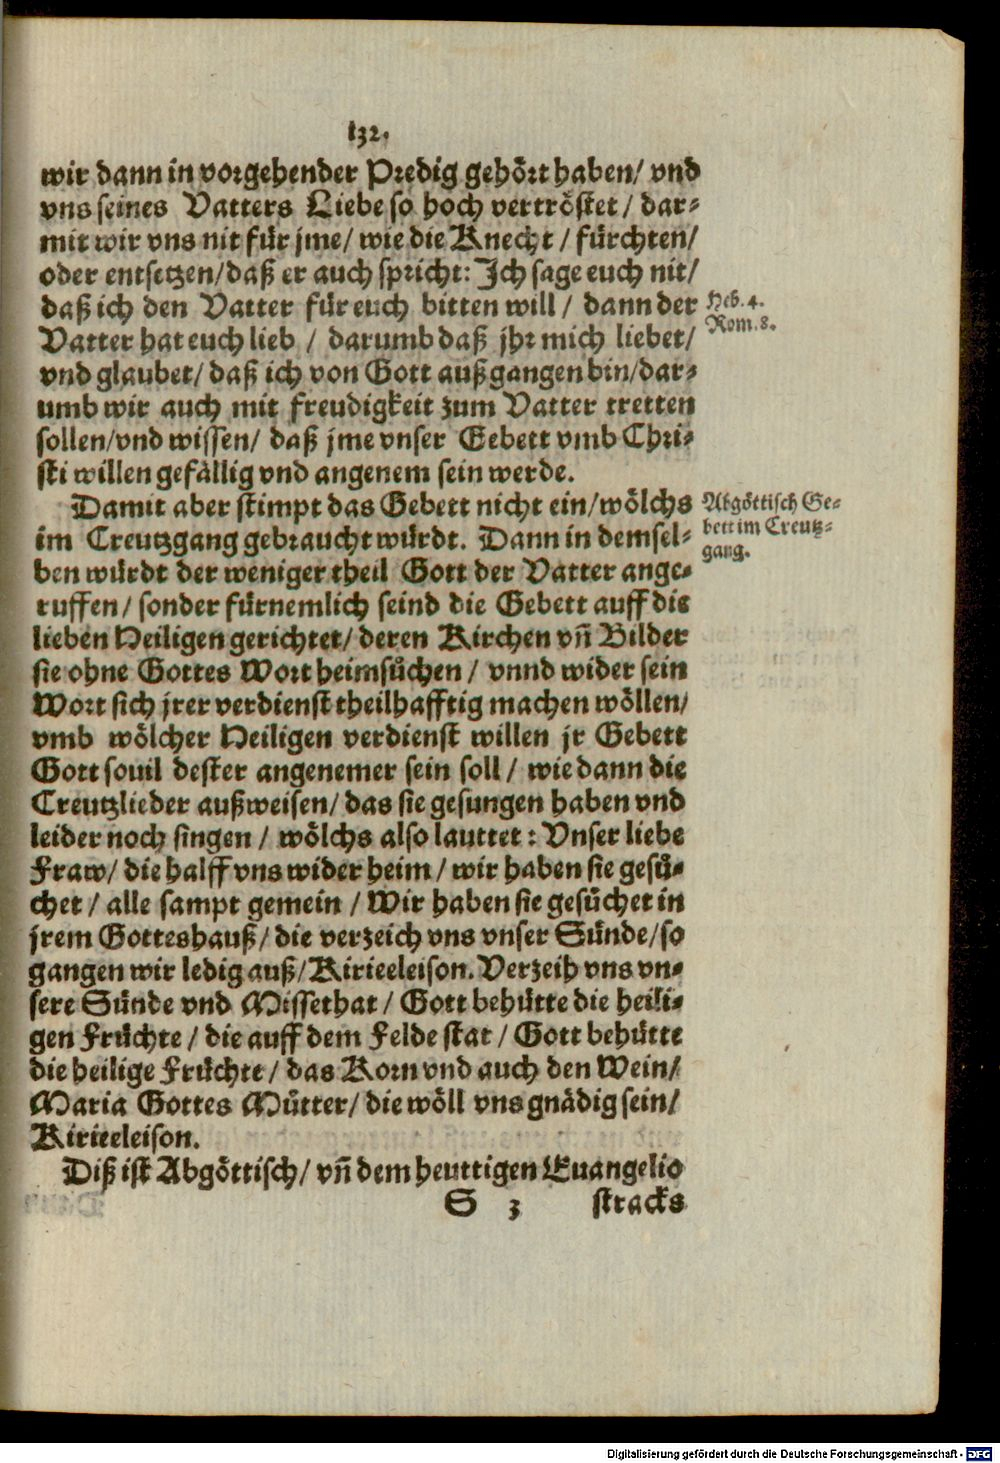 132.
wir dann in vorgehender Predig gehört haben/ vnd
vns seines Vatters Liebe so hoch vertröstet / dar-
mit wir vns nit für jme/ wie die Knecht / fürchten/
oder entsetzen/daß er auch spricht: Ich sage euch nit/
daß ich den Vatter für euch bitten will / dann der
Heb. 4.
Rom. 8.
Vatter hat euch lieb / darumb daß jhr mich liebet/
vnd glaubet/ daß ich von Gott außgangen bin/dar-
umb wir auch mit freudigkeit zum Vatter tretten
sollen/vnd wissen/ daß jme vnser Gebett vmb Chri-
sti willen gefällig vnd angenem sein werde.
Damit aber stimpt das Gebett nicht ein/wölchs
im Creutzgang gebraucht würdt. Dann in demsel-
Abgöttisch Ge-
bett im Creutz-
gang.
ben würdt der weniger theil Gott der Vatter ange-
ruffen/ sonder fürnemlich seind die Gebett auff die
lieben Heiligen gerichtet/ deren Kirchen vñ Bilder
sie ohne Gottes Wort heimsůchen / vnnd wider sein
Wort sich jrer verdienst theilhafftig machen wöllen/
vmb wölcher Heiligen verdienst willen jr Gebett
Gott souil dester angenemer sein soll / wie dann die
Creutzlieder außweisen/ das sie gesungen haben vnd
leider noch singen / wölchs also lauttet : Vnser liebe
Fraw/ die halff vns wider heim / wir haben sie gesů-
chet / alle sampt gemein / Wir haben sie gesůchet in
jrem Gotteshauß/ die verzeich vns vnser Sünde/so
gangen wir ledig auß/ Kirieeleison. Verzeih vns vn-
sere Sünde vnd Missethat / Gott behütte die heili-
gen Früchte / die auff dem Felde stat / Gott behütte
die heilige Früchte / das Korn vnd auch den Wein/
Maria Gottes Můtter/ die wöll vns gnädig sein/
Kirieeleison.
Diß ist Abgöttisch/ vñ dem heuttigen Euangelio
S 3 stracks
Digitalisierung gefördert durch die Deutsche Forschungsgemeinschaft - DFG